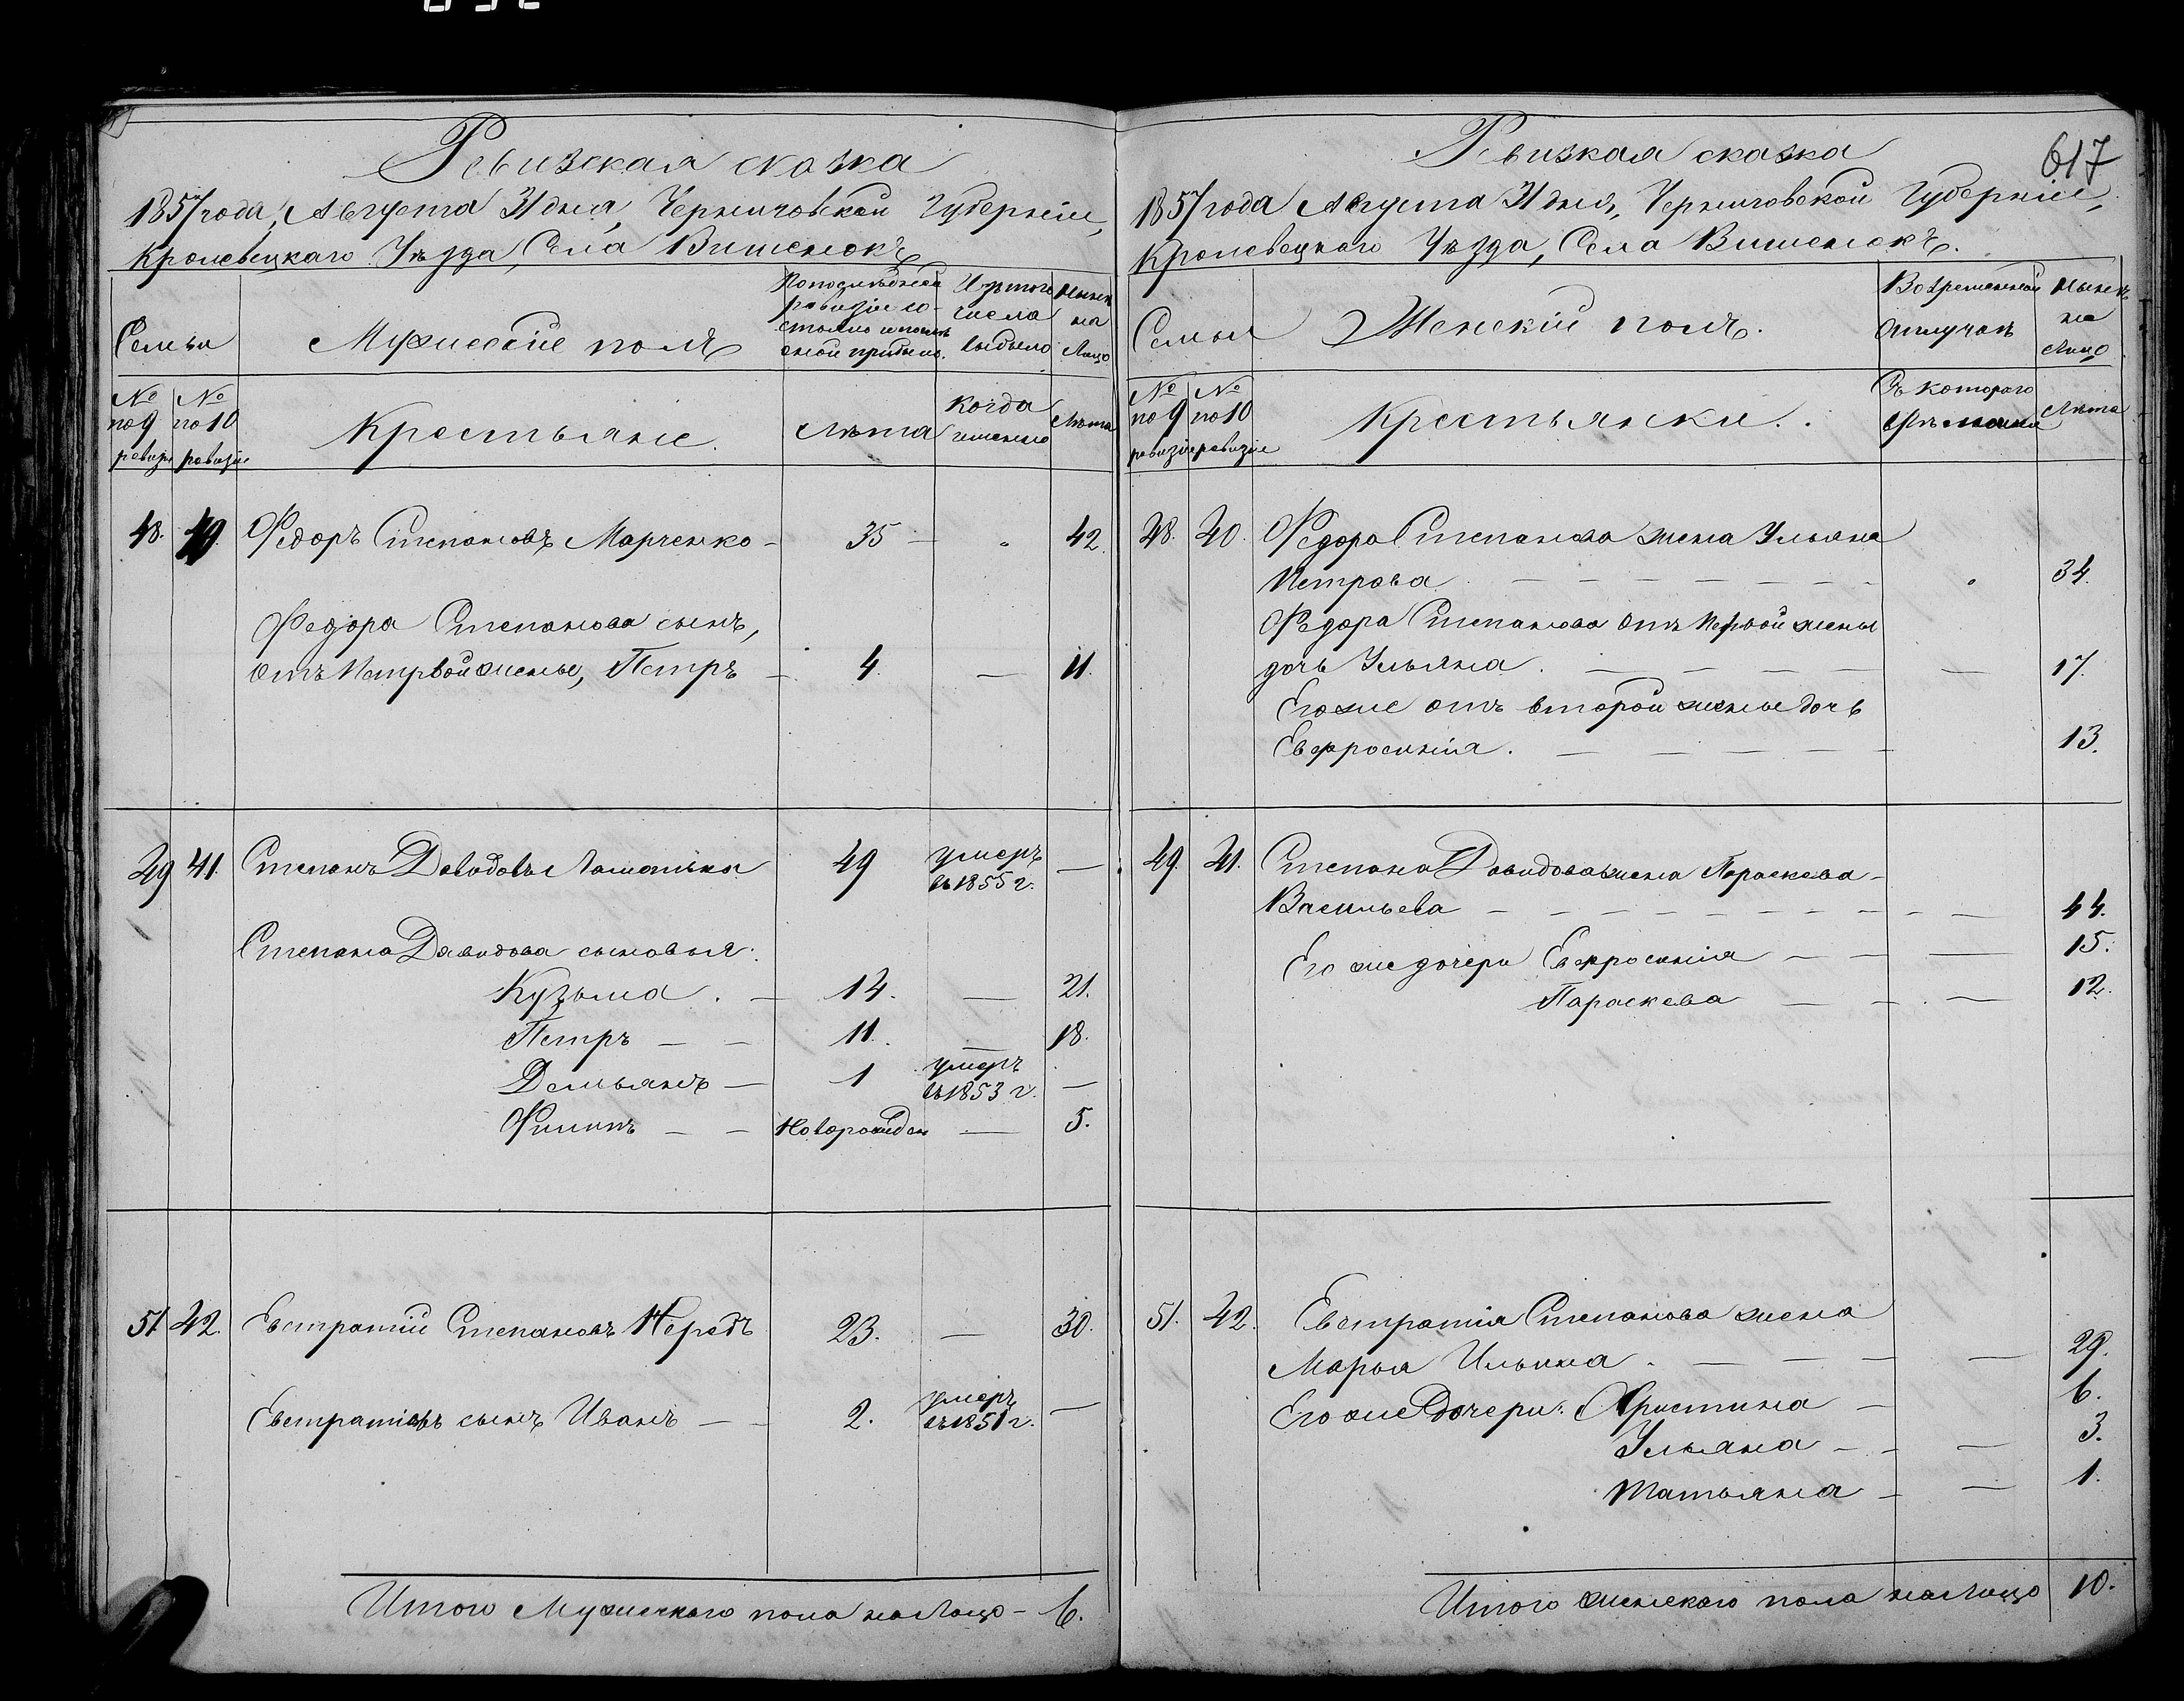 Ревизская сказка
1857 года, Августа 31 дня, Черниговской Губерніи,
Кролевецкаго Уѣзда, Села Вишенокъ
Семьи
Мужескій полъ
По последней
ревизіи со-
стояло и после
оной прибыло.
Изъ того
числа
выбыло
Нынѣ
на
Лицо
№
по 9
ревизіи
№
по 10
ревизіи
Крестьяне.
Лѣта
когда
именно
Лѣта
48. 40. Федоръ Степановъ Марченко - 35 - 42.
Федора Степанова сынъ,
отъ Петрвой жены, Петръ - 4. — 11.
49 41. Степанъ Давыдовъ 49 умеръ
въ 1855 г. —
Степана Давыдова сыновья:
Кузьма. - 14. — 21.
Петръ — — 11. — 18.
Демьянъ — 1 умеръ
въ 1853 г. —
Филипъ — — Новорожден — 5.
51 42. Евстратій Степановъ 23. — 30.
сынъ Иванъ — 2. умеръ
въ 1851 г. —
Итого Мужескаго пола на Лицо - 6.
617
Ревизкая сказка
1857 года Августа 31 дня, Черниговской Губерніи,
Кролевецкаго Уѣзда, Села Вишенокъ.
Семья
Женскій полъ.
Во временной
отлучкѣ
Нынѣ
на
Лицо
№
по 9
ревизіи
№
по 10
ревизіи
Крестьянки.
Съ котораго
времени
Лѣта
48. 40. Федора Степанова жена Ульяна
Петрова. — — — — — — — 34.
Федора Степанова отъ Первой жены
дочь Ульяна. — — — — 17.
Его же отъ второй жены дочь
Евфросинія. — — — — — 13.
49. 41. Степана Давыдова жена Параскева -
Васильева — — — — — — — 44.
Его же дочери Евфросинія — — — 15.
Параскева — — — 12.
51. 42. Евстратія Степанова жена
Марья Ильина. — — — — 29.
Его же Дочери: Христина — 6.
Ульяна — — — 3.
Татьяна — — 1.
Итого женскаго пола на Лицо 10.